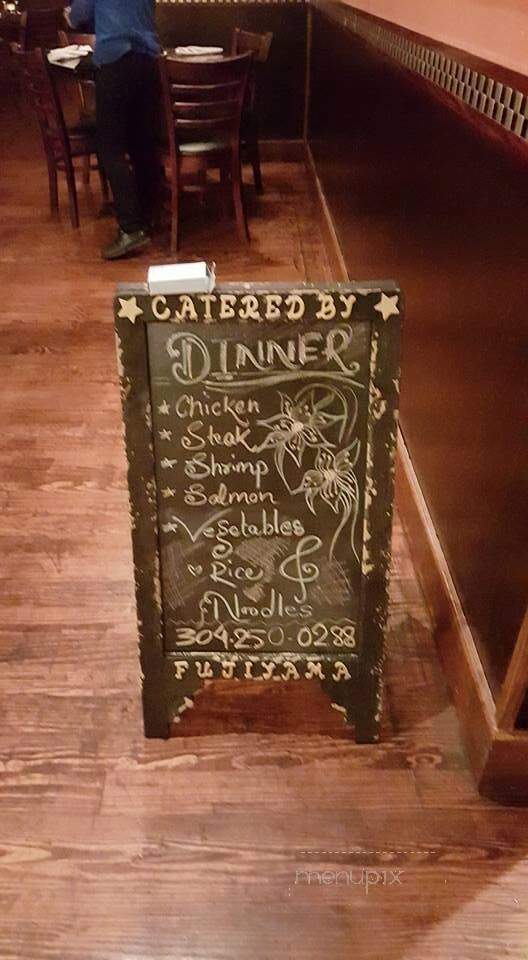 CATERED BY
DINNER
Chicken
Steak
Shrimp
Salmon
Vegetables
Rice &
Noodles
304.250.0288
FUJIYAMA
menupix